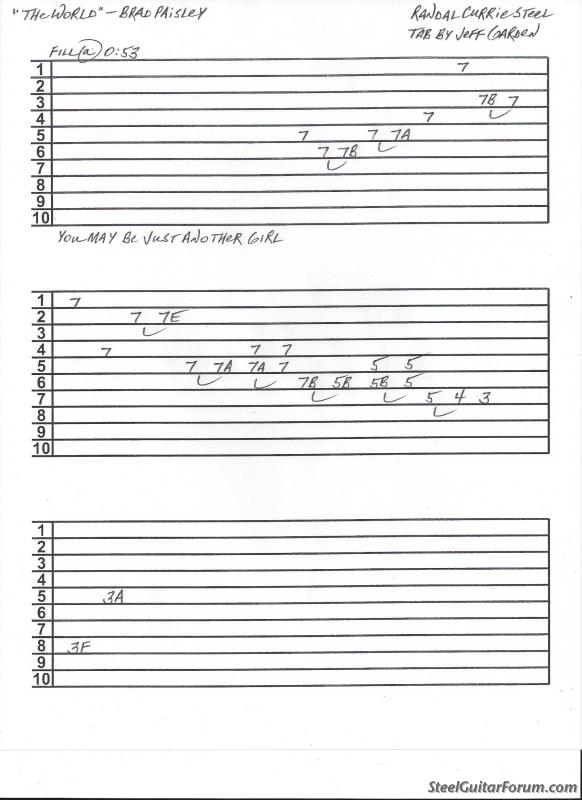 "THE WORLD" – BRAD PAISLEY
RANDAL CURRIE STEEL
TAB BY JEFF GARDEN
FILL @ 0:53
1 7
2
3 7B 7
4 7
5 7 7 7A
6 7 7B
7
8
9
10
YOU MAY BE JUST ANOTHER GIRL
1 7
2 7 7E
3
4 7 7 7
5 7 7A 7A 7 5 5
6 7B 5B 5B 5
7 5 4 3
8
9
10
1
2
3
4
5 3A
6
7
8 3F
9
10
SteelGuitarForum.com